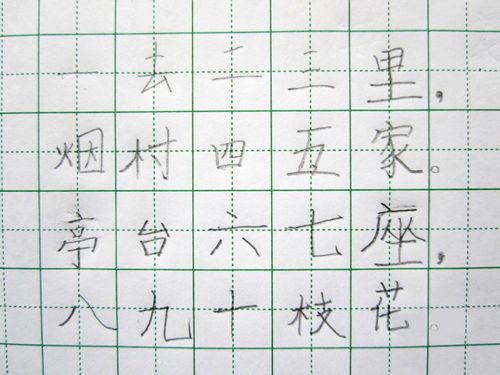 一去二三里，
烟村四五家。
亭台六七座，
八九十枝花。